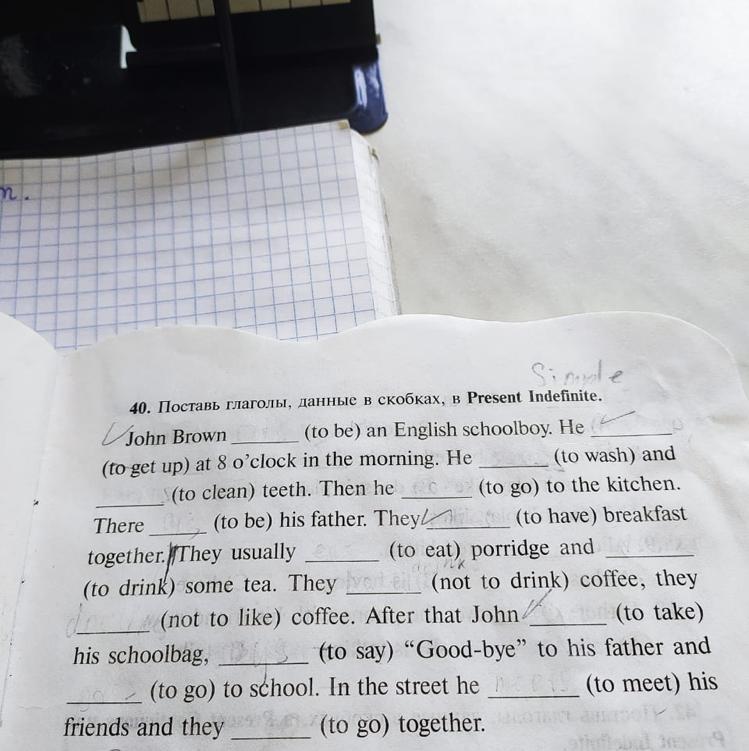 Simple
40. Поставь глаголы, данные в скобках, в Present Indefinite.
John Brown ______ (to be) an English schoolboy. He ______
(to get up) at 8 o'clock in the morning. He ______ (to wash) and
______ (to clean) teeth. Then he ______ (to go) to the kitchen.
There ______ (to be) his father. They ______ (to have) breakfast
together. They usually ______ (to eat) porridge and ______
(to drink) some tea. They ______ (not to drink) coffee, they
______ (not to like) coffee. After that John ______ (to take)
his schoolbag, ______ (to say) “Good-bye” to his father and
______ (to go) to school. In the street he ______ (to meet) his
friends and they ______ (to go) together.